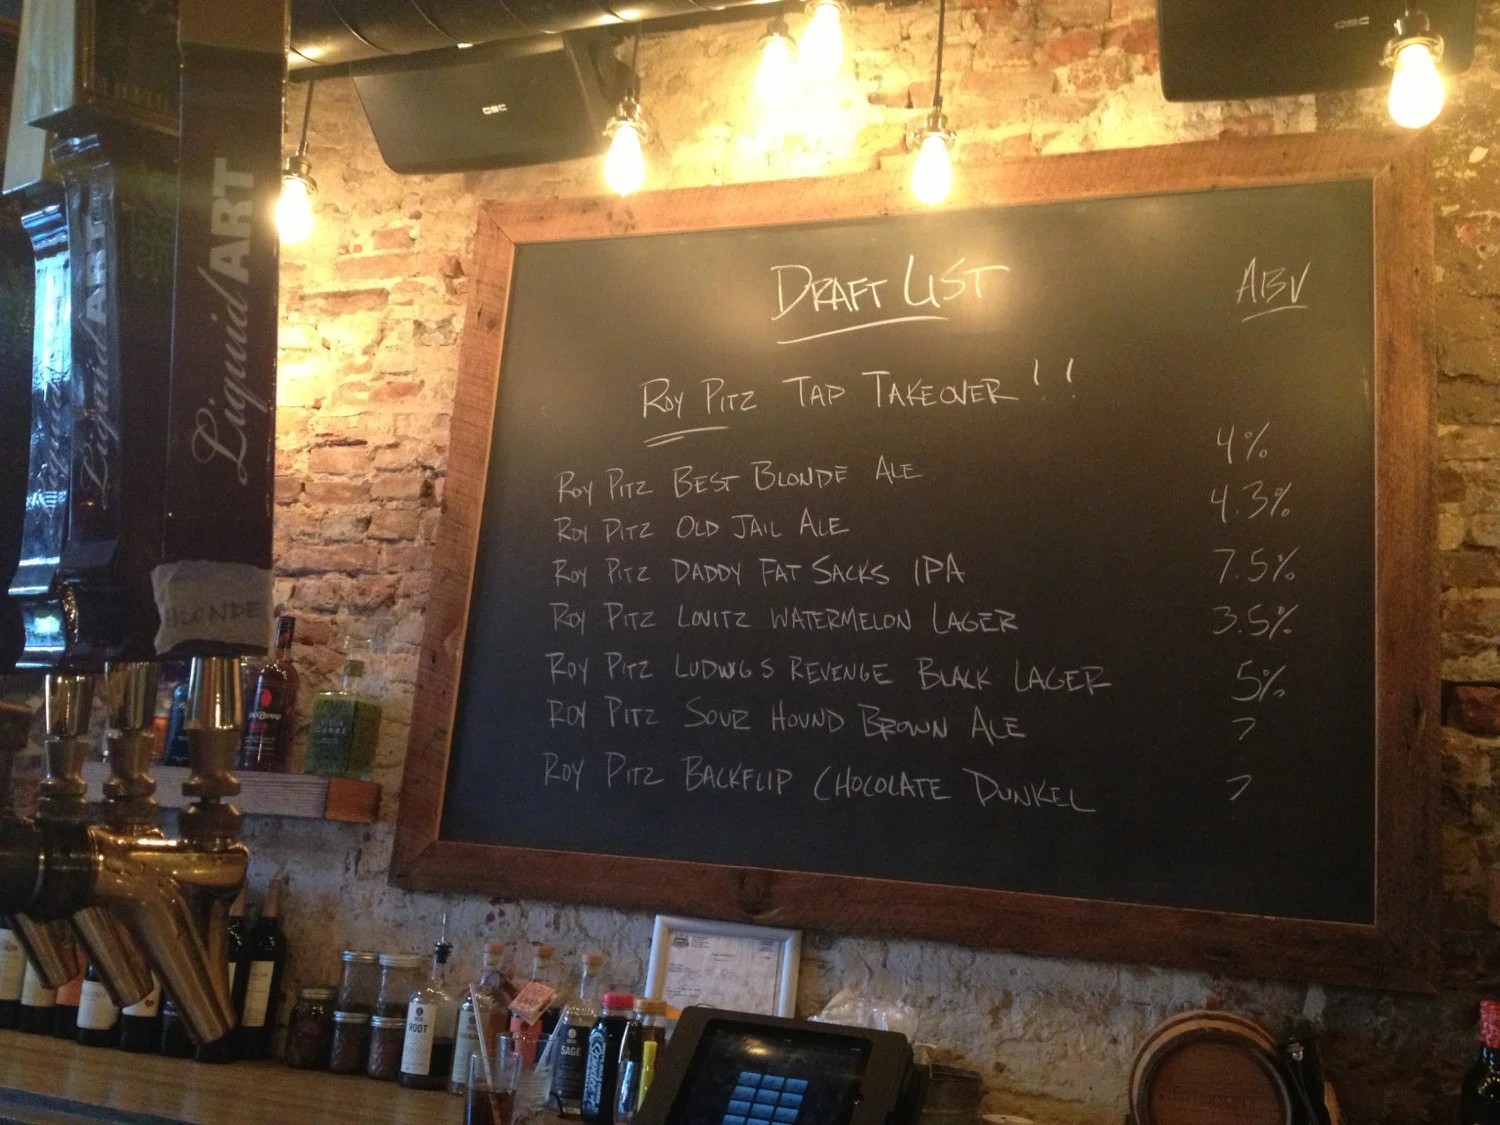 DRAFT LIST ABV
ROY PITZ TAP TAKEOVER!!
ROY PITZ BEST BLONDE ALE 4%
ROY PITZ OLD JAIL ALE 4.3%
ROY PITZ DADDY FAT SACKS IPA 7.5%
ROY PITZ LOVITZ WATERMELON LAGER 3.5%
ROY PITZ LUDWIGS REVENGE BLACK LAGER 5%
ROY PITZ SOUR HOUND BROWN ALE ?
ROY PITZ BACKFLIP CHOCOLATE DUNKEL ?
Liquid ART
Liquid ART
BLONDE
QSC
QSC
ROOT
SAGE